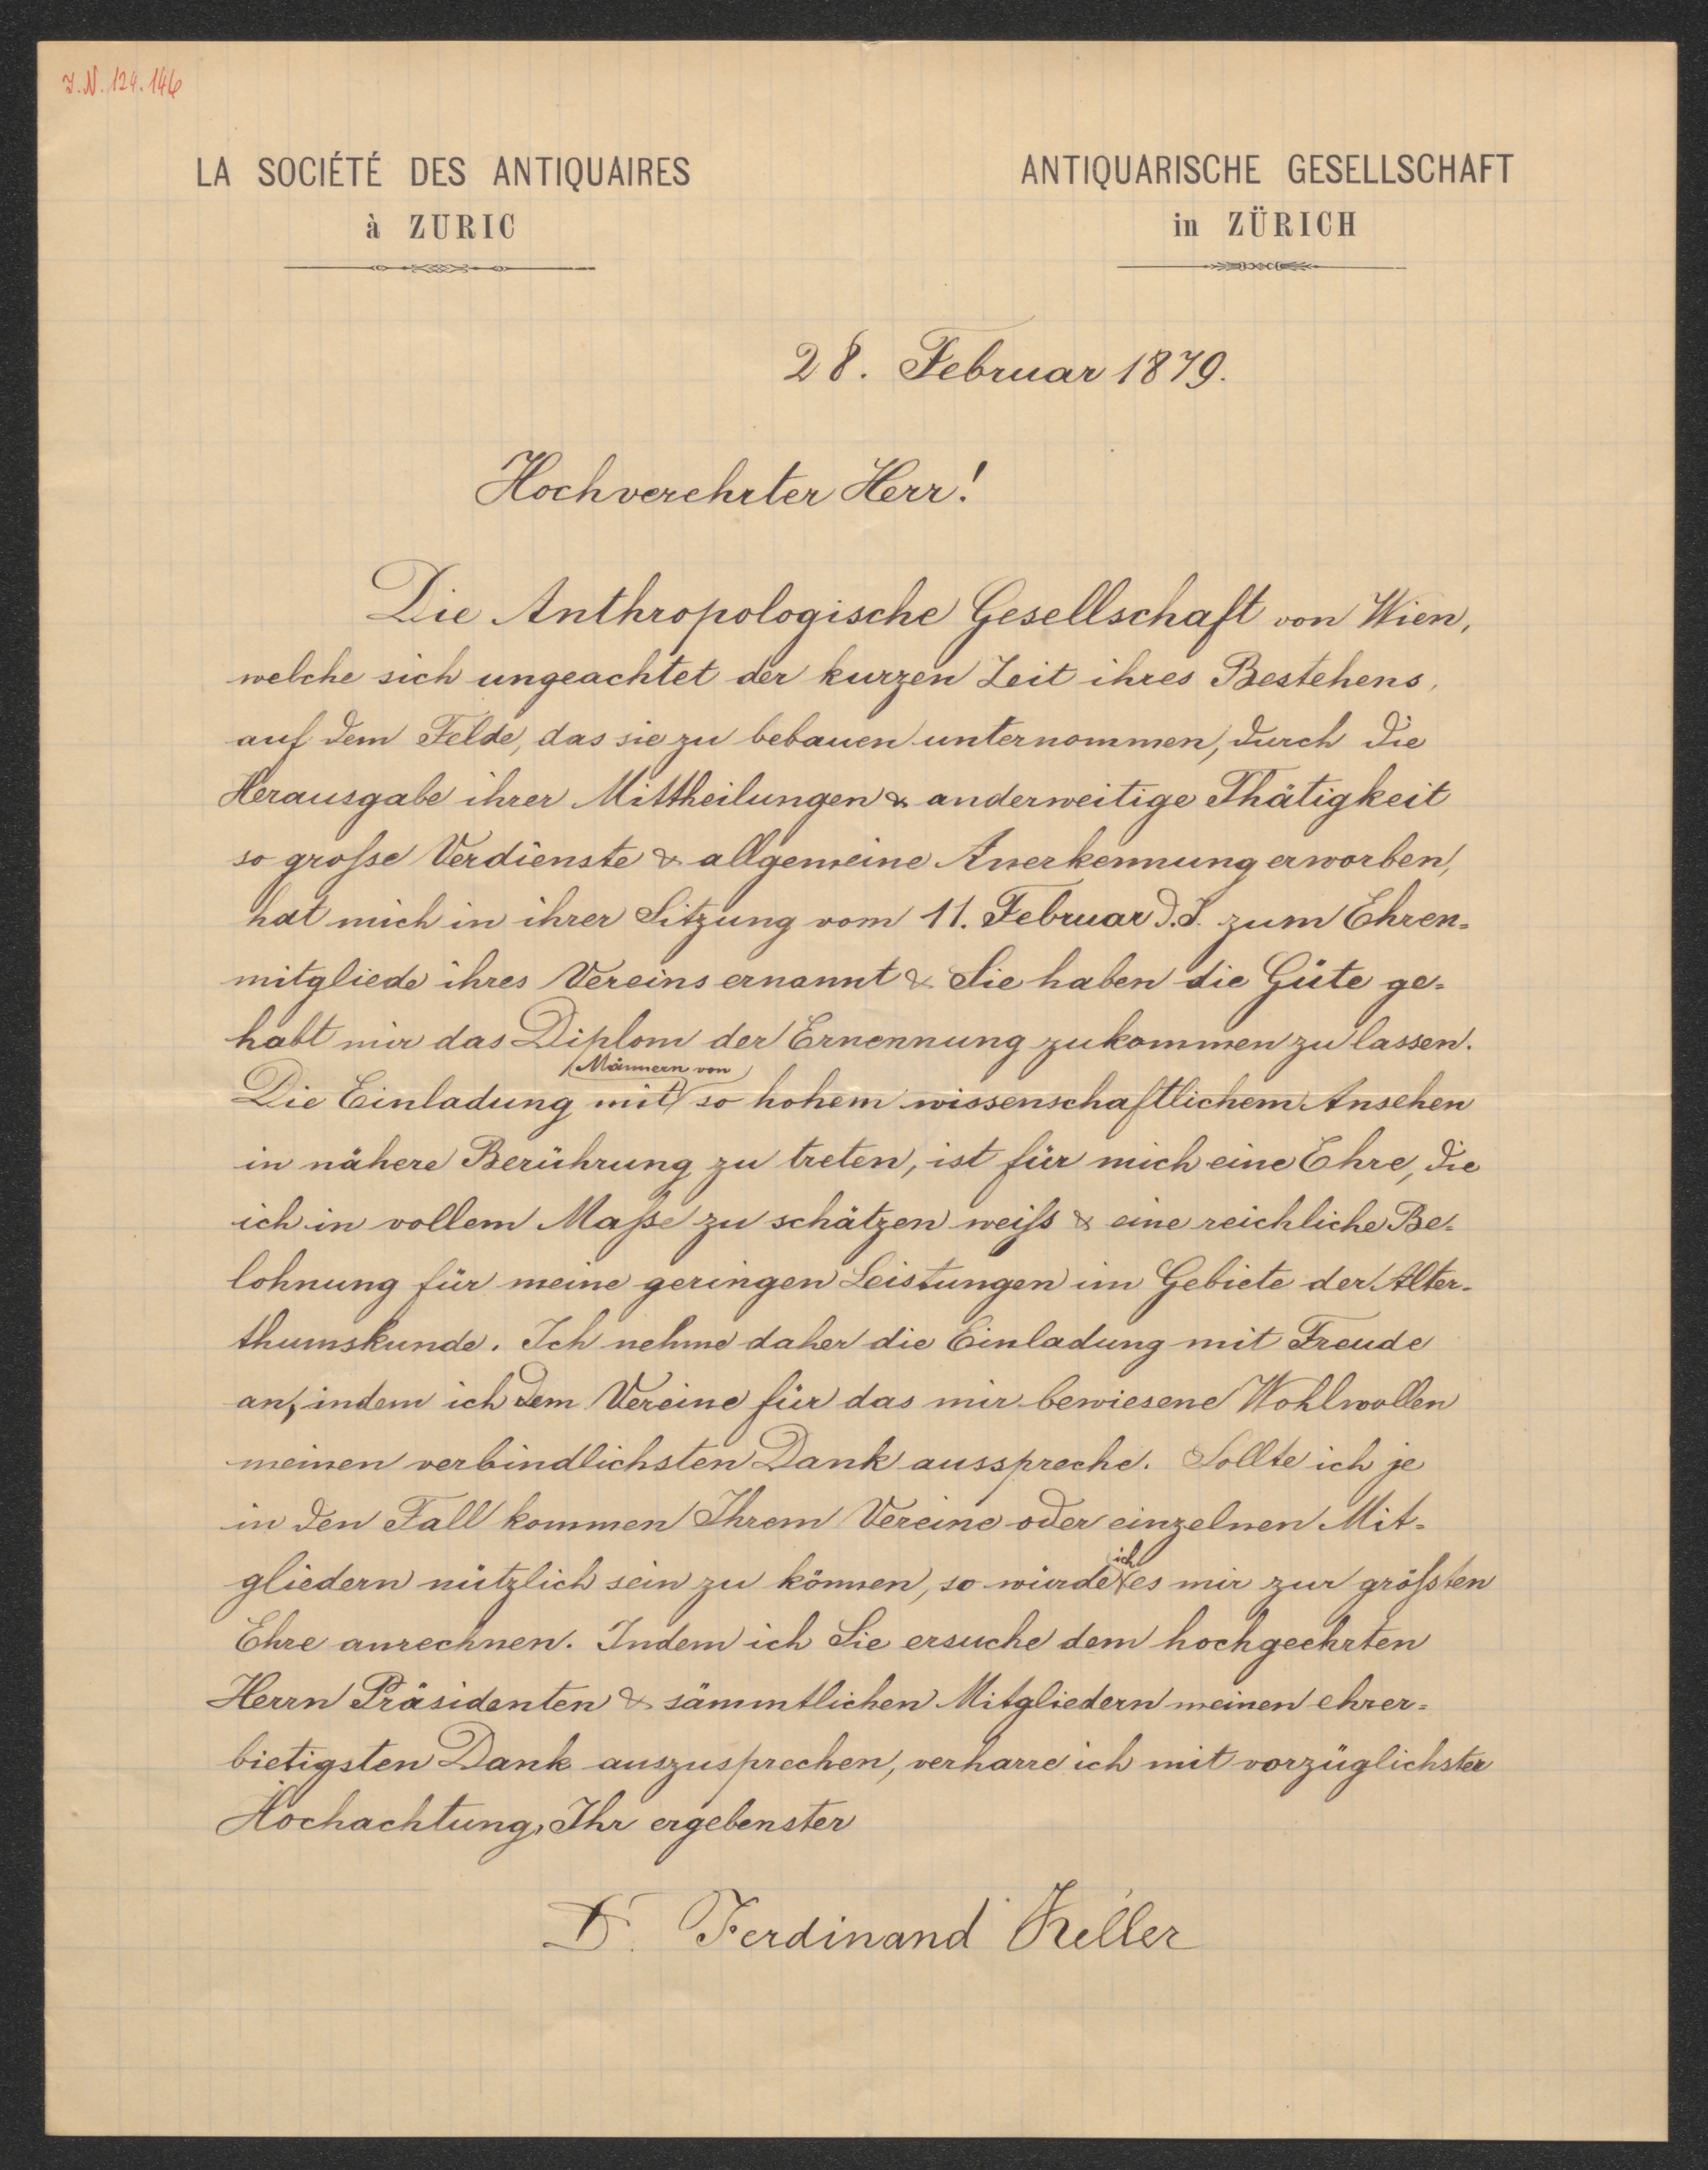 J.N. 124.146
LA SOCIÉTÉ DES ANTIQUAIRES
à ZURIC
ANTIQUARISCHE GESELLSCHAFT
in ZÜRICH
28. Februar 1879.
Hochverehrter Herr!
Die Anthropologische Gesellschaft von Wien,
welche sich ungeachtet der kurzen Zeit ihres Bestehens,
auf dem Felde, das sie zu bebauen unternommen, durch die
Herausgabe ihrer Mittheilungen & anderweitige Thätigkeit
so große Verdienste & allgemeine Anerkennung erworben,
hat mich in ihrer Sitzung vom 11. Februar d.J. zum Ehren=
mitgliede ihres Vereins ernannt & Sie haben die Güte ge=
habt mir das Diplom der Ernennung zukommen zu lassen.
Männern von
Die Einladung mit so hohem wissenschaftlichem Ansehen
in nähere Berührung zu treten, ist für mich eine Ehre, die
ich in vollem Maße zu schätzen weiß & eine reichliche Be=
lohnung für meine geringen Leistungen im Gebiete der Alter=
thumskunde. Ich nehme daher die Einladung mit Freude
an, indem ich dem Vereine für das mir bewiesene Wohlwollen
meinen verbindlichsten Dank ausspreche. Sollte ich je
in den Fall kommen Ihrem Vereine oder einzelnen Mit=
gliedern nützlich sein zu können, so würde ich es mir zur größten
Ehre anrechnen. Indem ich Sie ersuche dem hochgeehrten
Herrn Präsidenten & sämmtlichen Mitgliedern meinen ehrer=
bietigsten Dank auszusprechen, verharre ich mit vorzüglichster
Hochachtung, Ihr ergebenster
D. Ferdinand Keller